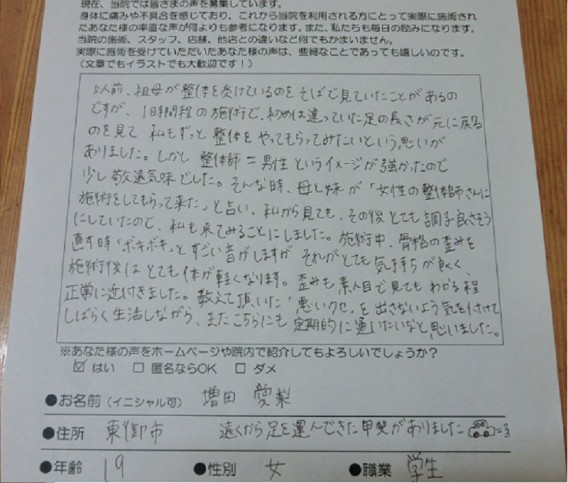 現在、当院では皆さまの声を募集しています。
身体に痛みや不具合を感じており、これから当院を利用される方にとって実際に施術され
たあなた様の率直な声が何よりも参考になります。また、私たちも毎日の励みになります。
当院の施術、スタッフ、店舗、他店との違いなど何でもかまいません。
実際に施術を受けていただいたあなた様の声は、些細なことであっても嬉しいのです。
(文章でもイラストでも大歓迎です!)
以前、祖母が整体を受けているのをそばで見ていたことがあるの
ですが、1時間程の施術で、初めは違っていた足の長さが元に戻る
のを見て私もずっと整体をやってもらってみたいという思いが
ありました。しかし整体師=男性というイメージが強かったので
少し敬遠気味でした。そんな時、母と妹が「女性の整体師さんに
施術をしてもらって来た」と言い、私から見ても、その後とても調子良さそう
にしていたので、私も来てみることにしました。施術中、骨格の歪みを
直す時「ボキボキ」とすごい音がしますが、それがとても気持ちが良く、
施術後はとても体が軽くなります。歪みも素人目で見てもわかる程
正常に近付きました。教えて頂いた「悪いクセ」を出さないよう気を付けて
しばらく生活しながら、またこちらにも定期的に通いたいなと思いました。
※あなた様の声をホームページや院内で紹介してもよろしいでしょうか?
☑ はい □ 匿名ならOK □ ダメ
●お名前(イニシャル可) 増田 愛梨
●住所 東御市 遠くから足を運んできた甲斐がありました
●年齢 19 ●性別 女 ●職業 学生